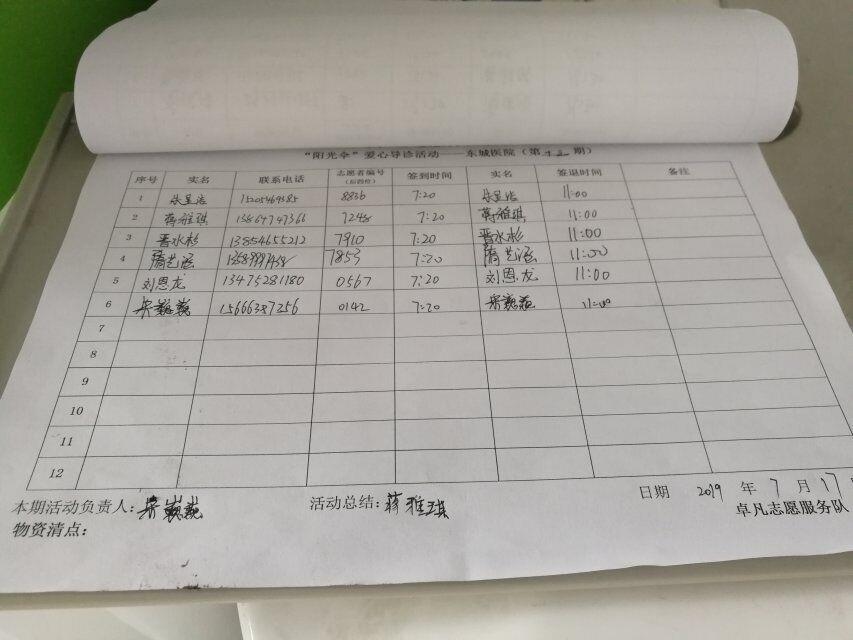 "阳光伞"爱心导诊活动——东城医院（第十五期）
序号 实名 联系电话 志愿者编号（后四位） 签到时间 实名 签退时间 备注
1 15205469385 8836 7:20 11:00
2 蒋雅琪 13864747366 7248 7:20 蒋雅琪 11:00
3 晋水杉 13854655212 7910 7:20 晋水杉 11:00
4 7853 7:20 11:00
5 刘恩龙 13475281180 0567 7:20 刘恩龙 11:00
6 宋巍巍 15666387256 0142 7:20 宋巍巍 11:00
7
8
9
10
11
12
本期活动负责人：宋巍巍 活动总结：蒋雅琪 日期 2019 年 7 月 17
物资清点： 卓凡志愿服务队